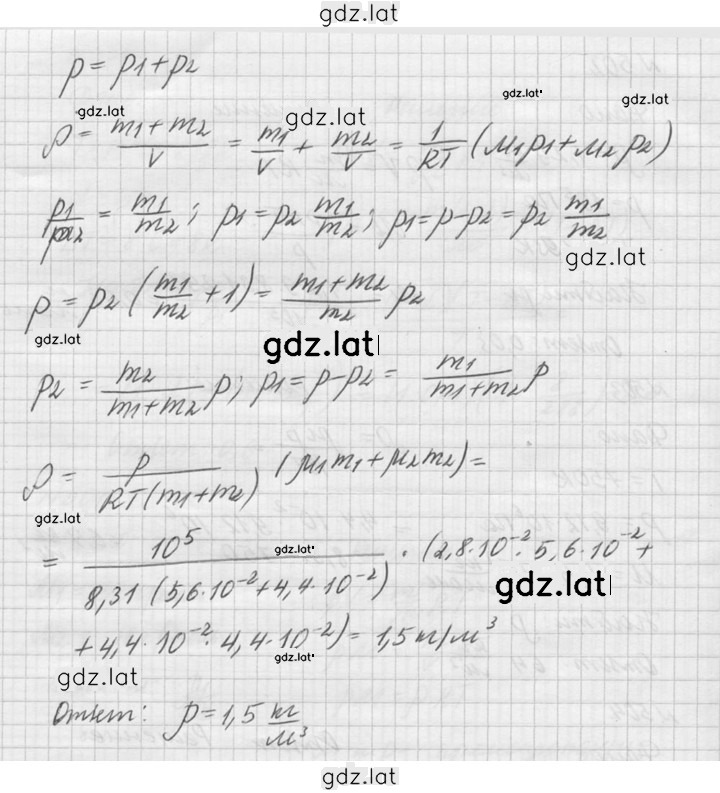 gdz.lat
p = p1 + p2
gdz.lat gdz.lat gdz.lat gdz.lat
ρ = (m1 + m2)/V = m1/V + m2/V = 1/RT (μ1p1 + μ2p2)
p1/p2 = m1/m2; p1 = p2 m1/m2; p1 = p - p2 = p2 m1/m2
gdz.lat
p = p2 (m1/m2 + 1) = (m1 + m2)/m2 p2
gdz.lat gdz.lat
p2 = m2/(m1 + m2) p; p1 = p - p2 = m1/(m1 + m2) p
ρ = p/(RT(m1 + m2)) (μ1m1 + μ2m2) =
gdz.lat gdz.lat
= 10^5/(8,31 (5,6·10^-2 + 4,4·10^-2)) · (2,8·10^-2 · 5,6·10^-2 +
gdz.lat
+ 4,4·10^-2 · 4,4·10^-2) = 1,5 кг/м^3
gdz.lat gdz.lat
Ответ: ρ = 1,5 кг/м^3
gdz.lat